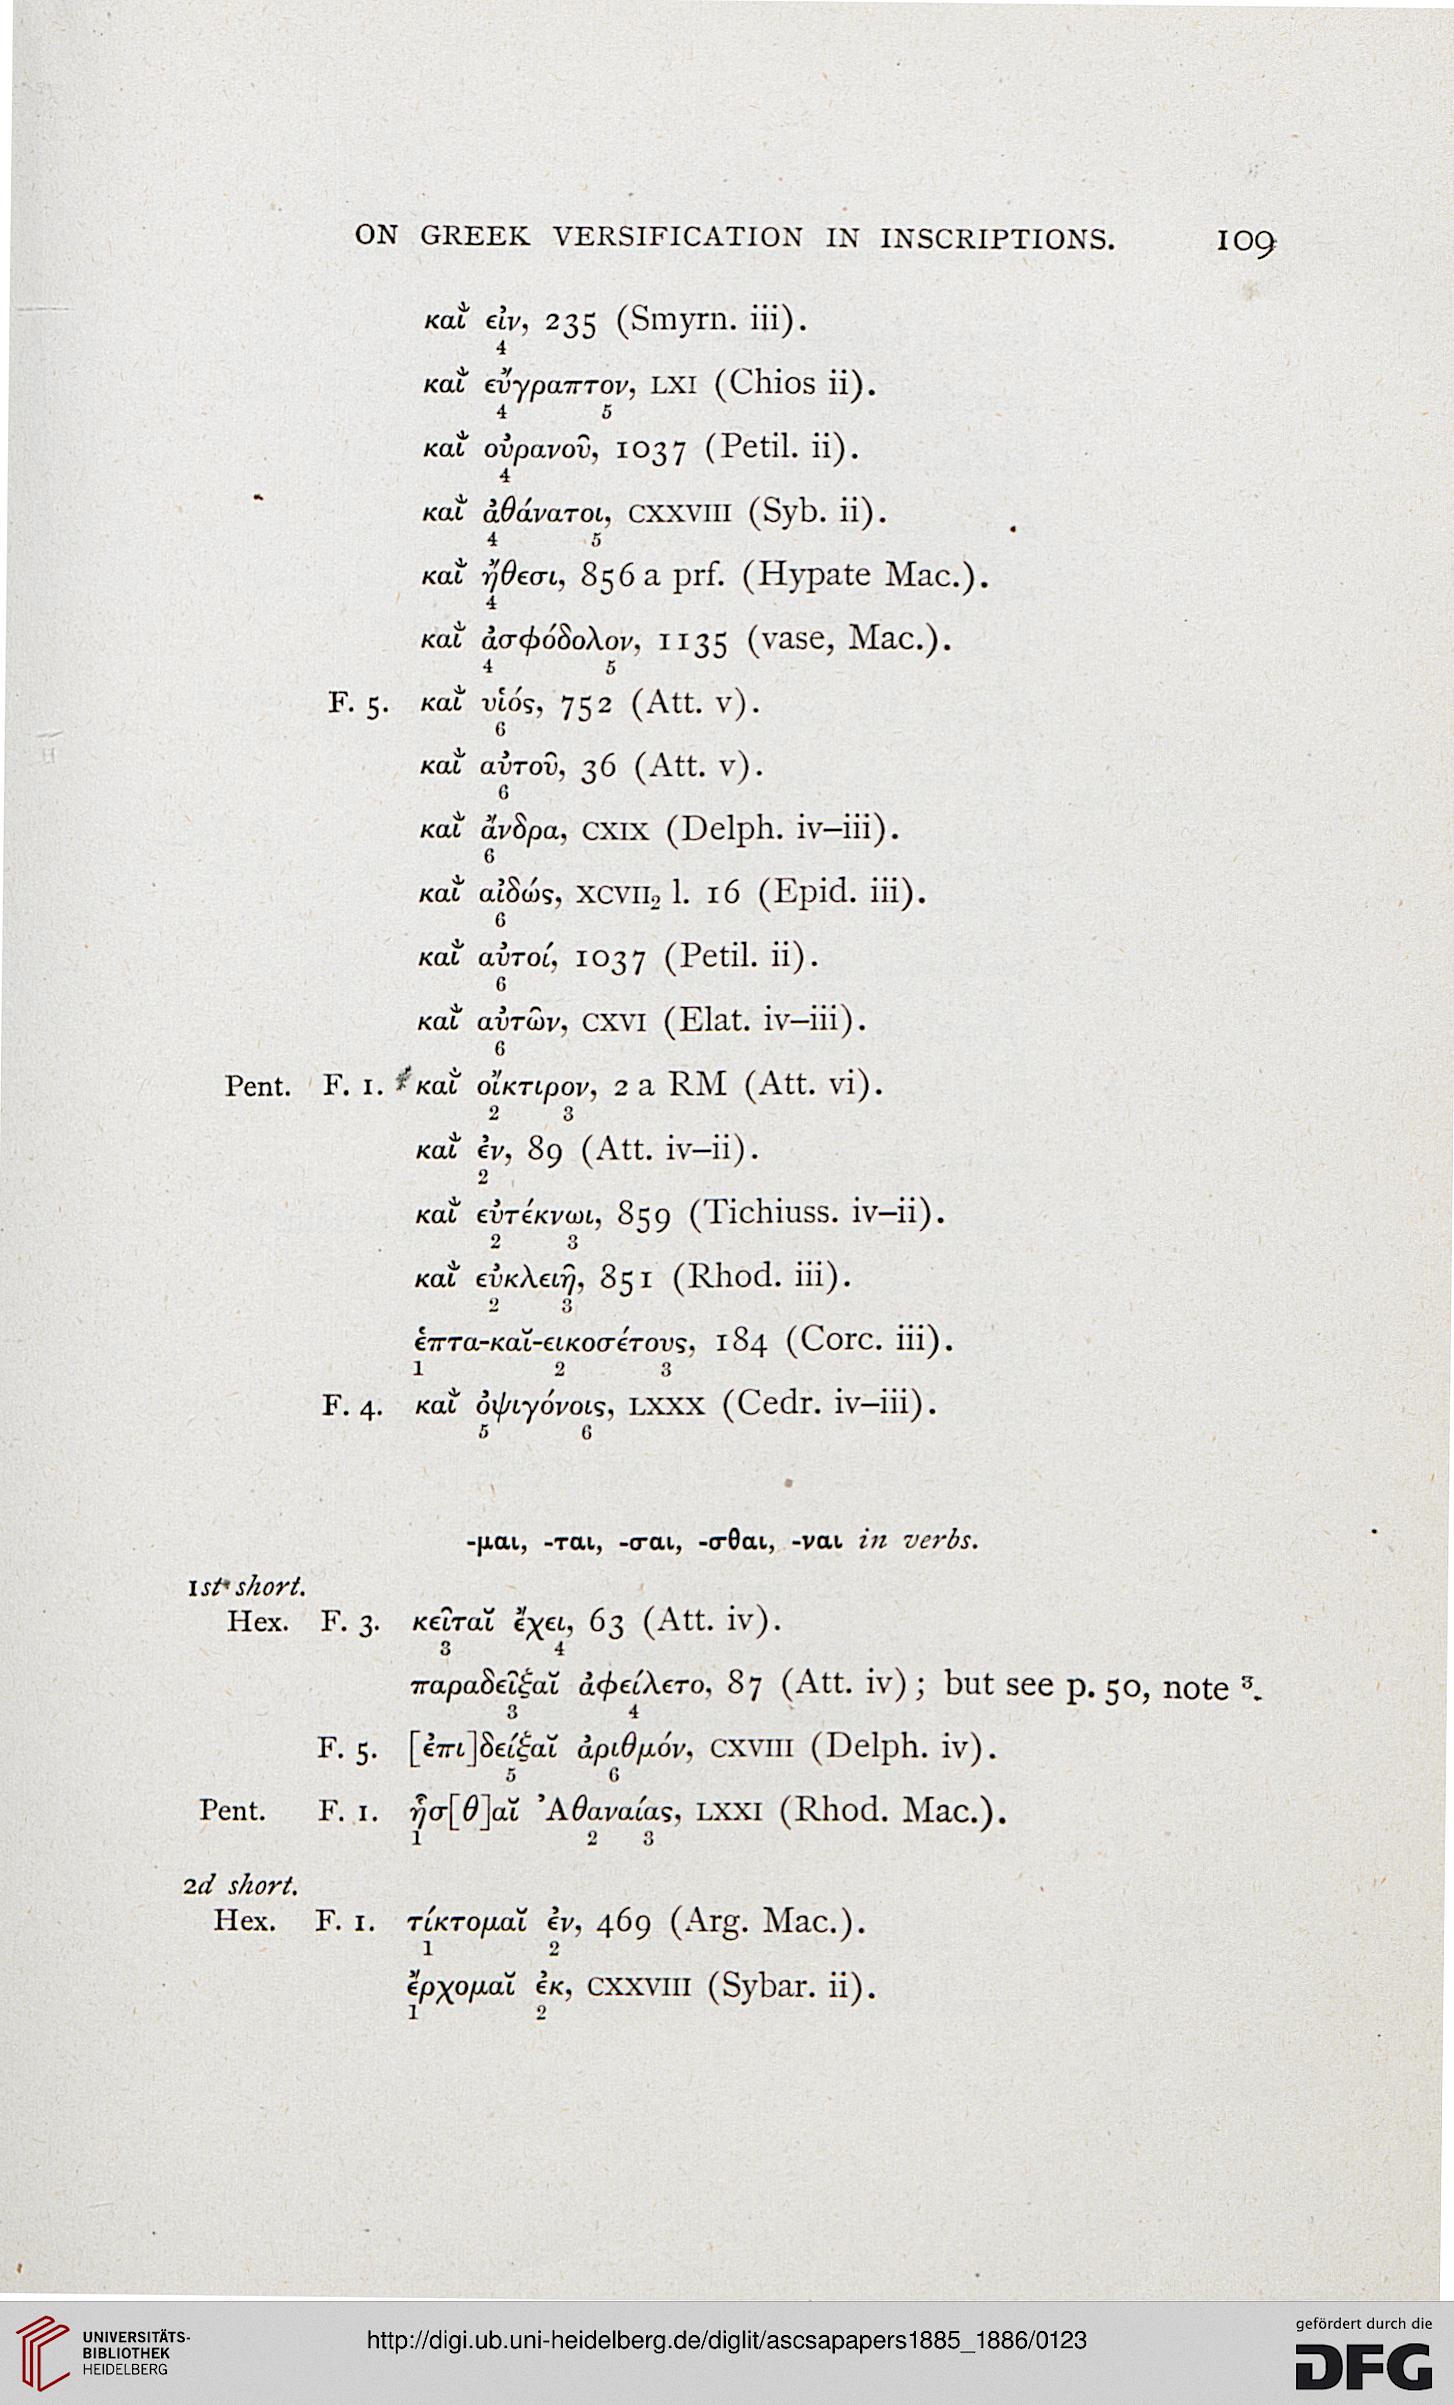 ON GREEK VERSIFICATION IN INSCRIPTIONS. 109
καῐ̀ εἰν, 235 (Smyrn. iii).
4
καῐ̀ εὔγραπτον, LXI (Chios ii).
4 5
καῐ̀ οὐρανοῦ, 1037 (Petil. ii).
4
καῐ̀ ἀθάνατοι, CXXVIII (Syb. ii).
4 5
καῐ̀ ἤθεσι, 856 a prf. (Hypate Mac.).
4
καῐ̀ ἀσφόδολον, 1135 (vase, Mac.).
4 5
F. 5. καῐ̀ υἱός, 752 (Att. v).
6
καῐ̀ αὐτοῦ, 36 (Att. v).
6
καῐ̀ ἄνδρα, CXIX (Delph. iv–iii).
6
καῐ̀ αἰδώς, XCVII₂ l. 16 (Epid. iii).
6
καῐ̀ αὐτοί, 1037 (Petil. ii).
6
καῐ̀ αὐτῶν, CXVI (Elat. iv–iii).
6
Pent. F. 1. *καῐ̀ οἴκτιρον, 2 a RM (Att. vi).
2 3
καῐ̀ ἐν, 89 (Att. iv–ii).
2
καῐ̀ εὐτέκνωι, 859 (Tichiuss. iv–ii).
2 3
καῐ̀ εὐκλειῆ, 851 (Rhod. iii).
2 3
ἑπτα-καῐ-εικοσέτους, 184 (Corc. iii).
1 2 3
F. 4. καῐ̀ ὀψιγόνοις, LXXX (Cedr. iv–iii).
5 6
-μαι, -ται, -σαι, -σθαι, -ναι in verbs.
1st short.
Hex. F. 3. κεῖταῐ ἔχει, 63 (Att. iv).
3 4
παραδεῖξαῐ ἀφείλετο, 87 (Att. iv); but see p. 50, note ³.
3 4
F. 5. [ἐπι]δείξαῐ ἀριθμόν, CXVIII (Delph. iv).
5 6
Pent. F. 1. ἧσ[θ]αῐ Ἀθαναίας, LXXI (Rhod. Mac.).
1 2 3
2d short.
Hex. F. 1. τίκτομαῐ ἐν, 469 (Arg. Mac.).
1 2
ἔρχομαῐ ἐκ, CXXVIII (Sybar. ii).
1 2
UNIVERSITÄTS-
BIBLIOTHEK
HEIDELBERG
http://digi.ub.uni-heidelberg.de/diglit/ascsapapers1885_1886/0123
gefördert durch die
DFG